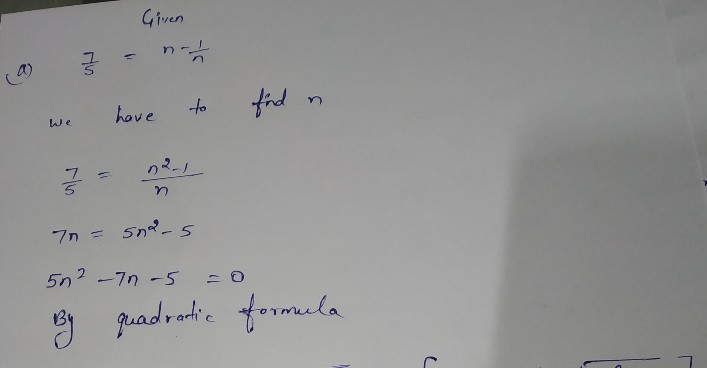 Given
(a) 7/5 = n - 1/n
we have to find n
7/5 = n²-1/n
7n = 5n² - 5
5n² - 7n - 5 = 0
By quadratic formula